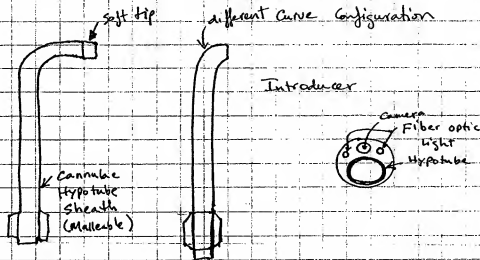 soft tip
different Curve Configuration
Introducer
Camera
Fiber optic
light
Hypotube
Cannulae
Hypotube
Sheath
(Malleable)